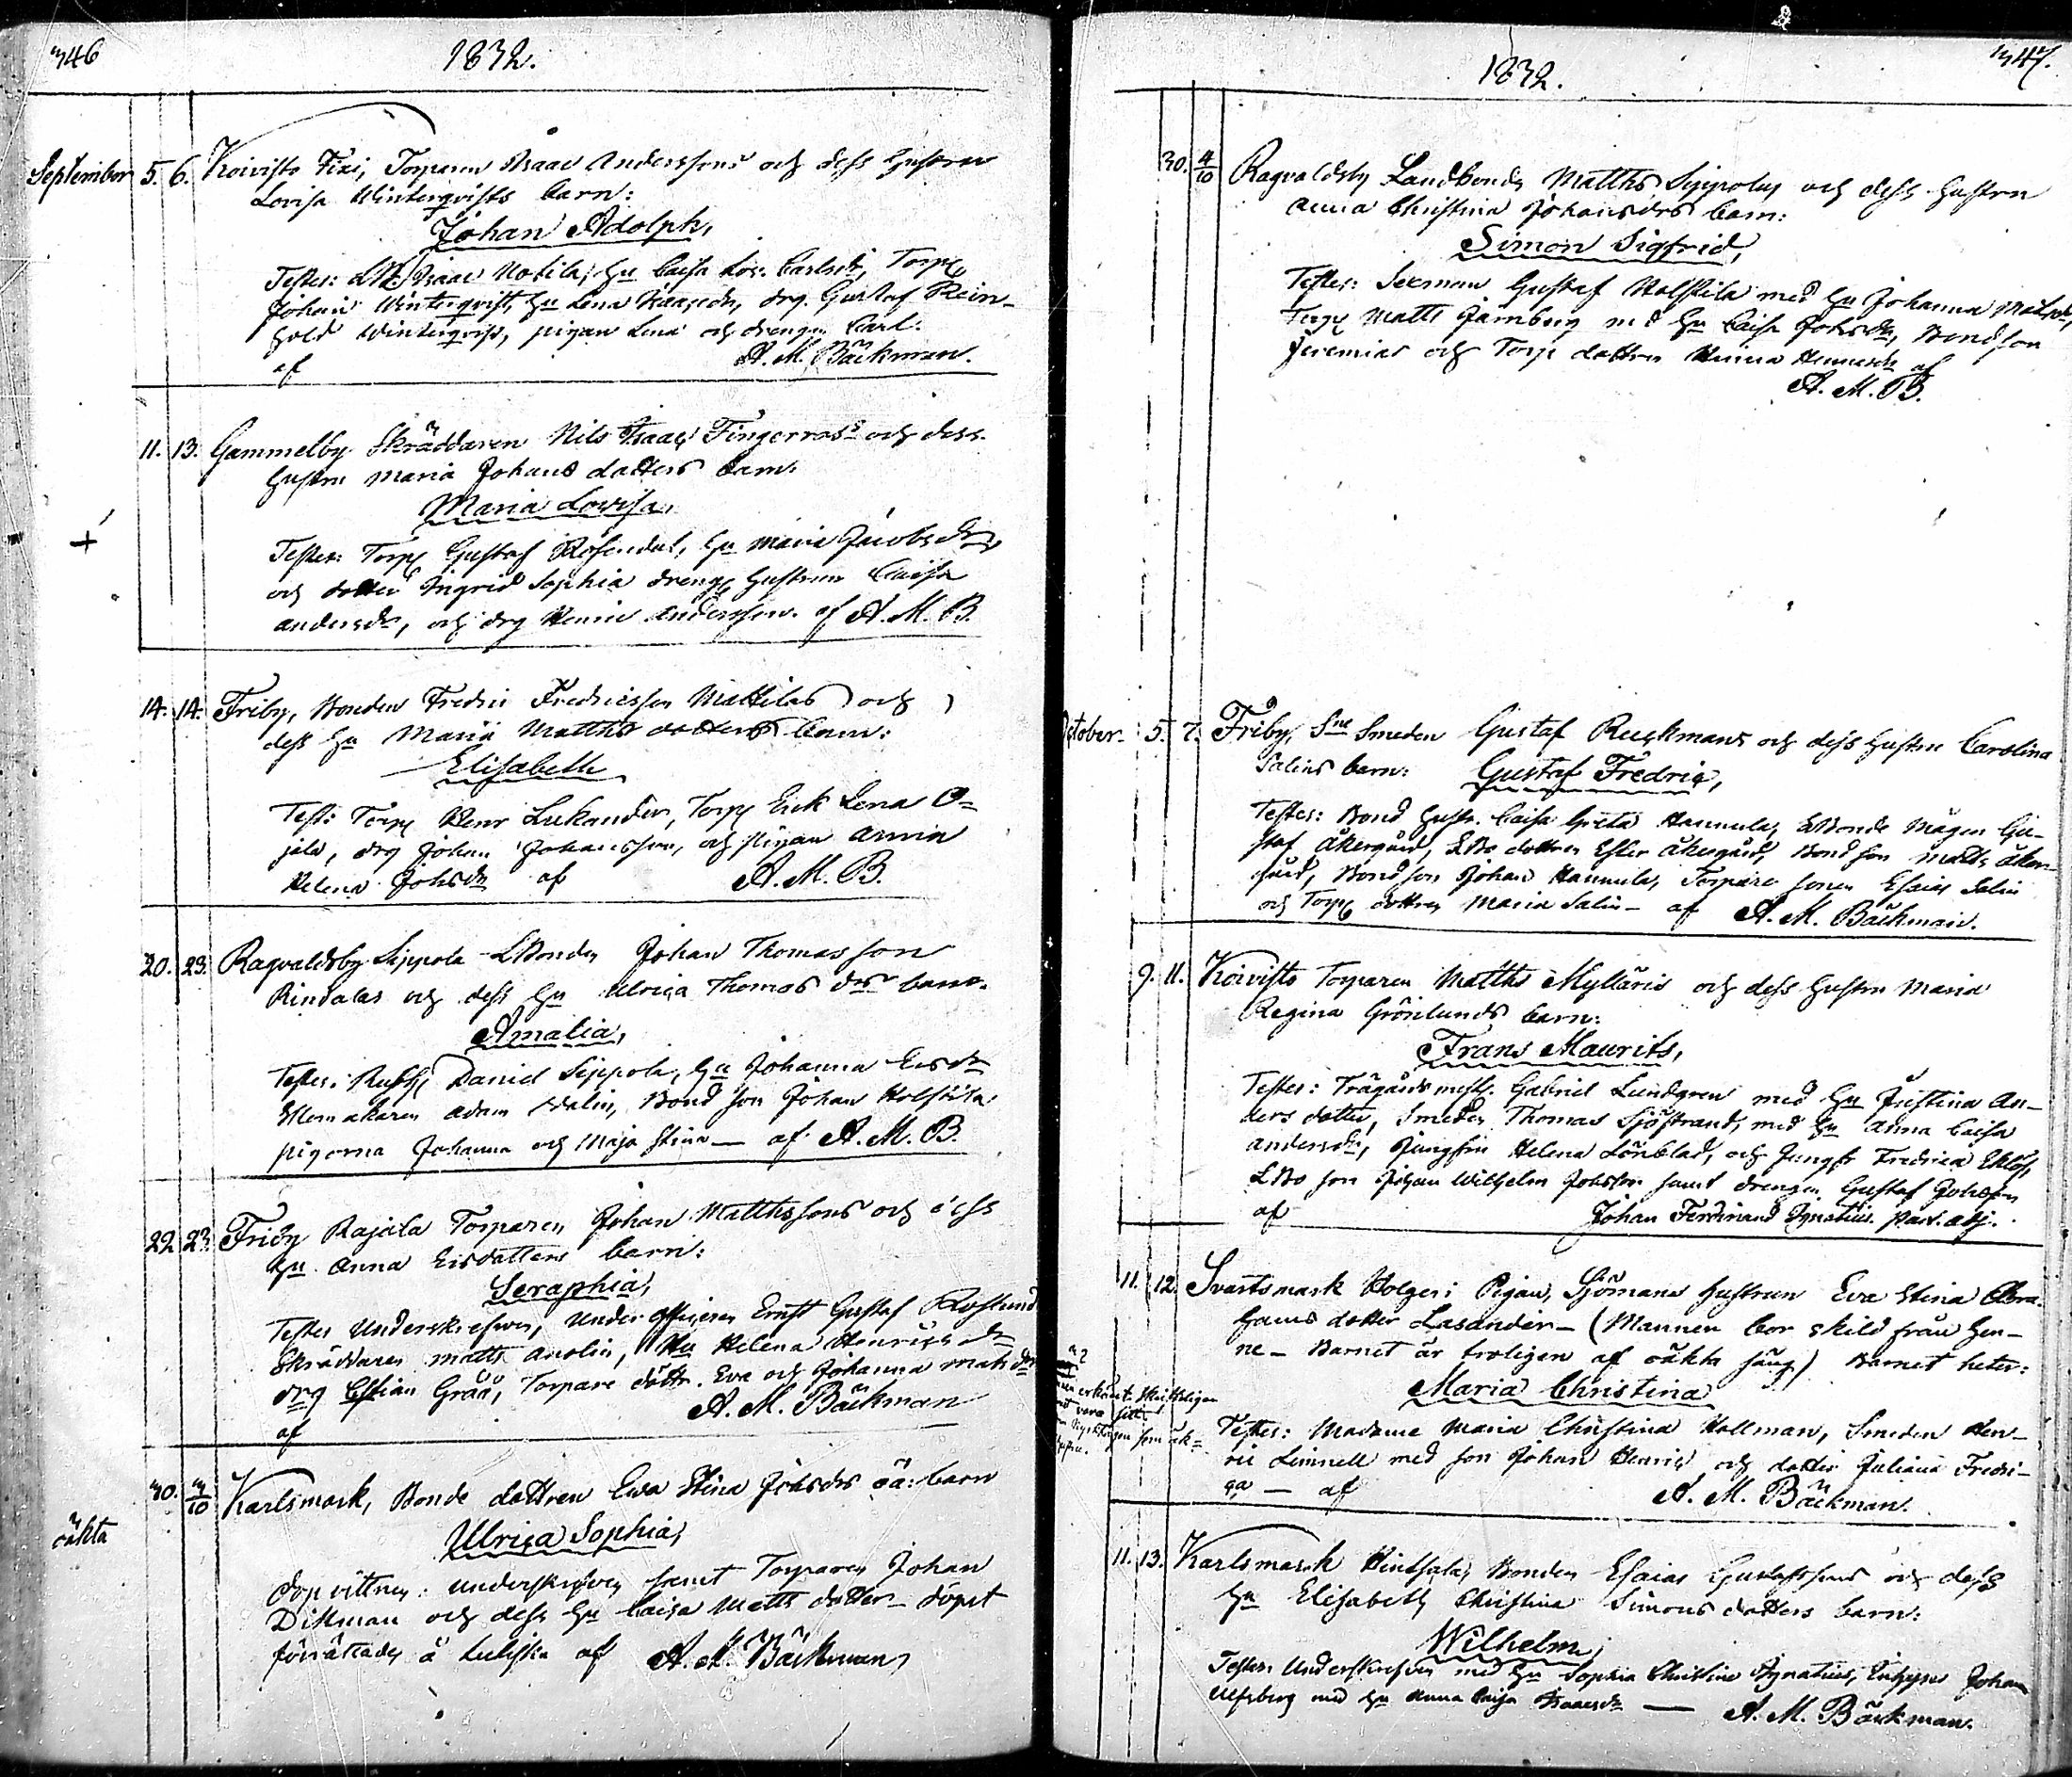 346
1832.
September 5. 6. Koivisto Torparen Isaac Anderssons och dess hustru
Lovisa Winterqvists barn:
Johan Adolph,
Testes: Isaac hu Caisa Lov. Torp.
Johan Winterqvist, hu Lena Isaacsdr, drg. Gustaf Rein-
hold Winterqvist, pigan Lena och drengen Carl.
af A. M. Bäckman.
11. 13. Gammelby Skräddaren Nils Isaac och dess
hustru Maria Johans dotters barn:
Maria Lovisa,
+
Testes: Torp Gustaf Rosendal, hu Maria Jacobsdr,
och dotter Ingrid Sophia dreng hustrun Caisa
Andersdr, och drg Andersson. af A. M. B.
14. 14. Friby, Bonden Fredric Fredricsson Mattilas och
dess hu Maria Matths dotters barn:
Elisabeth
Test: Torp Henr Lukander, Torp Erik Lena O-
jala, drg Johan Johansson, och pigan Anna
Helena Johsdr af A. M. B.
20. 23. Ragvaldsby Sippola LBonden Johan Thomasson
Rindalas och dess hu Ulrica Thomas drs barn.
Amalia,
Testes: Rusth Daniel Sippola, hu Johanna Ersdr
Adam Bond son Johan
pigorna Johanna och Maja Stina — af A. M. B.
22. 23. Friby Rajala Torparen Johan Matthssons och dess
hu Anna Ersdotters barn:
Seraphia,
Testes Underskrefven, Under officeren Ernst Gustaf Roslund
Skräddaren Matts Hu Helena Henricsdr
drg Torpare dottr. Eva och Johanna Matsdr
af A. M. Bäckman
30. 3/10 Karlsmark, Bonde dottren Eva Stina Johsdrs oä: barn
oäkta
Ulrica Sophia,
Dopvittnen: underskrefven samt Torparen Johan
Dikman och dess hu Caisa Matts dotter — döpet
förrättades å af A. M. Bäckman
347.
1832.
30. 4/10 Ragvaldsby Landbonden Matths Sippolas och dess hustru
Anna Christina Johansdrs barn:
Simon Sigfrid,
Testes: Sexman Gustaf med hu Johanna Matsdr,
Torp Matts Jarnberg med hu Caisa Johsdr, Bondson
Jeremias och Torp dottren Hanna af
A. M. B.
October 5. 7. Friby, Sne Smeden Gustaf Ruckmans och dess hustru Carolina
Salins barn: Gustaf Fredric,
Testes: Bond hustr. Caisa Greta Hannula, LBonde Mågen Gu-
staf Åkergård, LBo dottren Ester Åkergård, Bond son Matts Åker-
gård, Bond son Johan Hannula, Torpare sonen Esaias Salin
och Torp dottren Maria Salin — af A. M. Bäckman.
9. 11. Koivisto Torparen Matths Myllaris och dess hustru Maria
Regina Grönlunds barn:
Frans Maurits,
Testes: Trägårds mest. Gabriel Lundgren med hu Justina An-
ders dotter, Smeden Thomas Sjöstrand, med hu Anna Caisa
Andersdr, Jungfru Helena Lönblad, och Jungfr Fredrica Eklöf,
LBo son Johan Wilhelm Johsson samt drengen Gustaf Johsson
af Johan Ferdinand Ignatius past. adj.
11. 12. Svartsmark Holger: Pigan, Sjömans hustrun Eva Stina Abra-
hams dotter Lasander — (Mannen bor skild från hen-
ne — Barnet är troligen af oäkta säng) Barnet heter:
Maria Christina
Testes: Madame Maria Christina Hollman, Smeden Hen-
ric Linnell med son Johan Henric och dotter Juliana Fredri-
ca — af A. M. Bäckman.
11. 13. Karlsmark Bonden Esaias Gustafssons och dess
hu Elisabeth Christina Simons dotters barn:
Wilhelm,
Testes: Underskrefven med hu Sophia Christina Ignatius, Johan
Ulfsberg med hu Anna Caisa Isaacsdr — A. M. Bäckman.